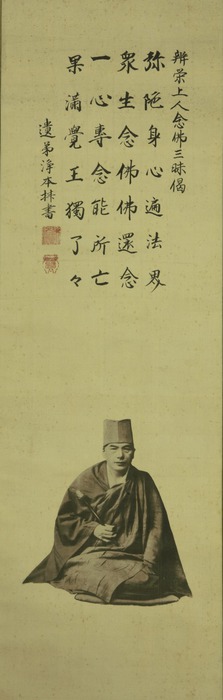 辨栄上人念佛三昧偈
弥陀身心遍法界
衆生念佛佛還念
一心專念能所亡
果滿覺王獨了々
遺弟淨本拝書